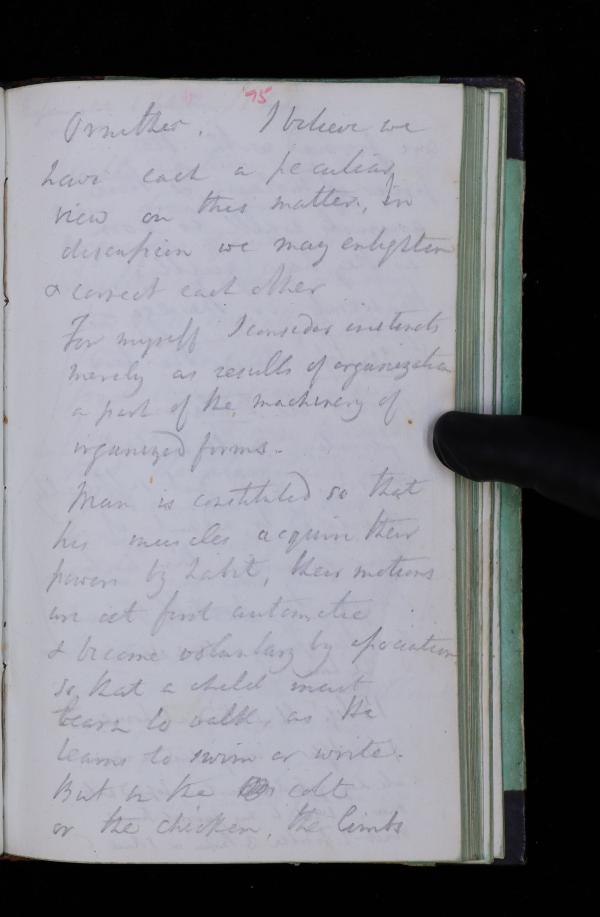 95
Ornither. I believe we
have each a peculiar
view on this matter, in
discussion we may enlighten
& correct each other
For myself I consider instincts
merely as results of organization
a part of the machinery of
organized forms.
Man is constituted so that
his muscles acquire their
powers by habit, their motions
are at first automatic
& become voluntary by association
so that a child must
learn to walk, as he
learns to swim or write.
But in the colt
or the chicken, the limbs